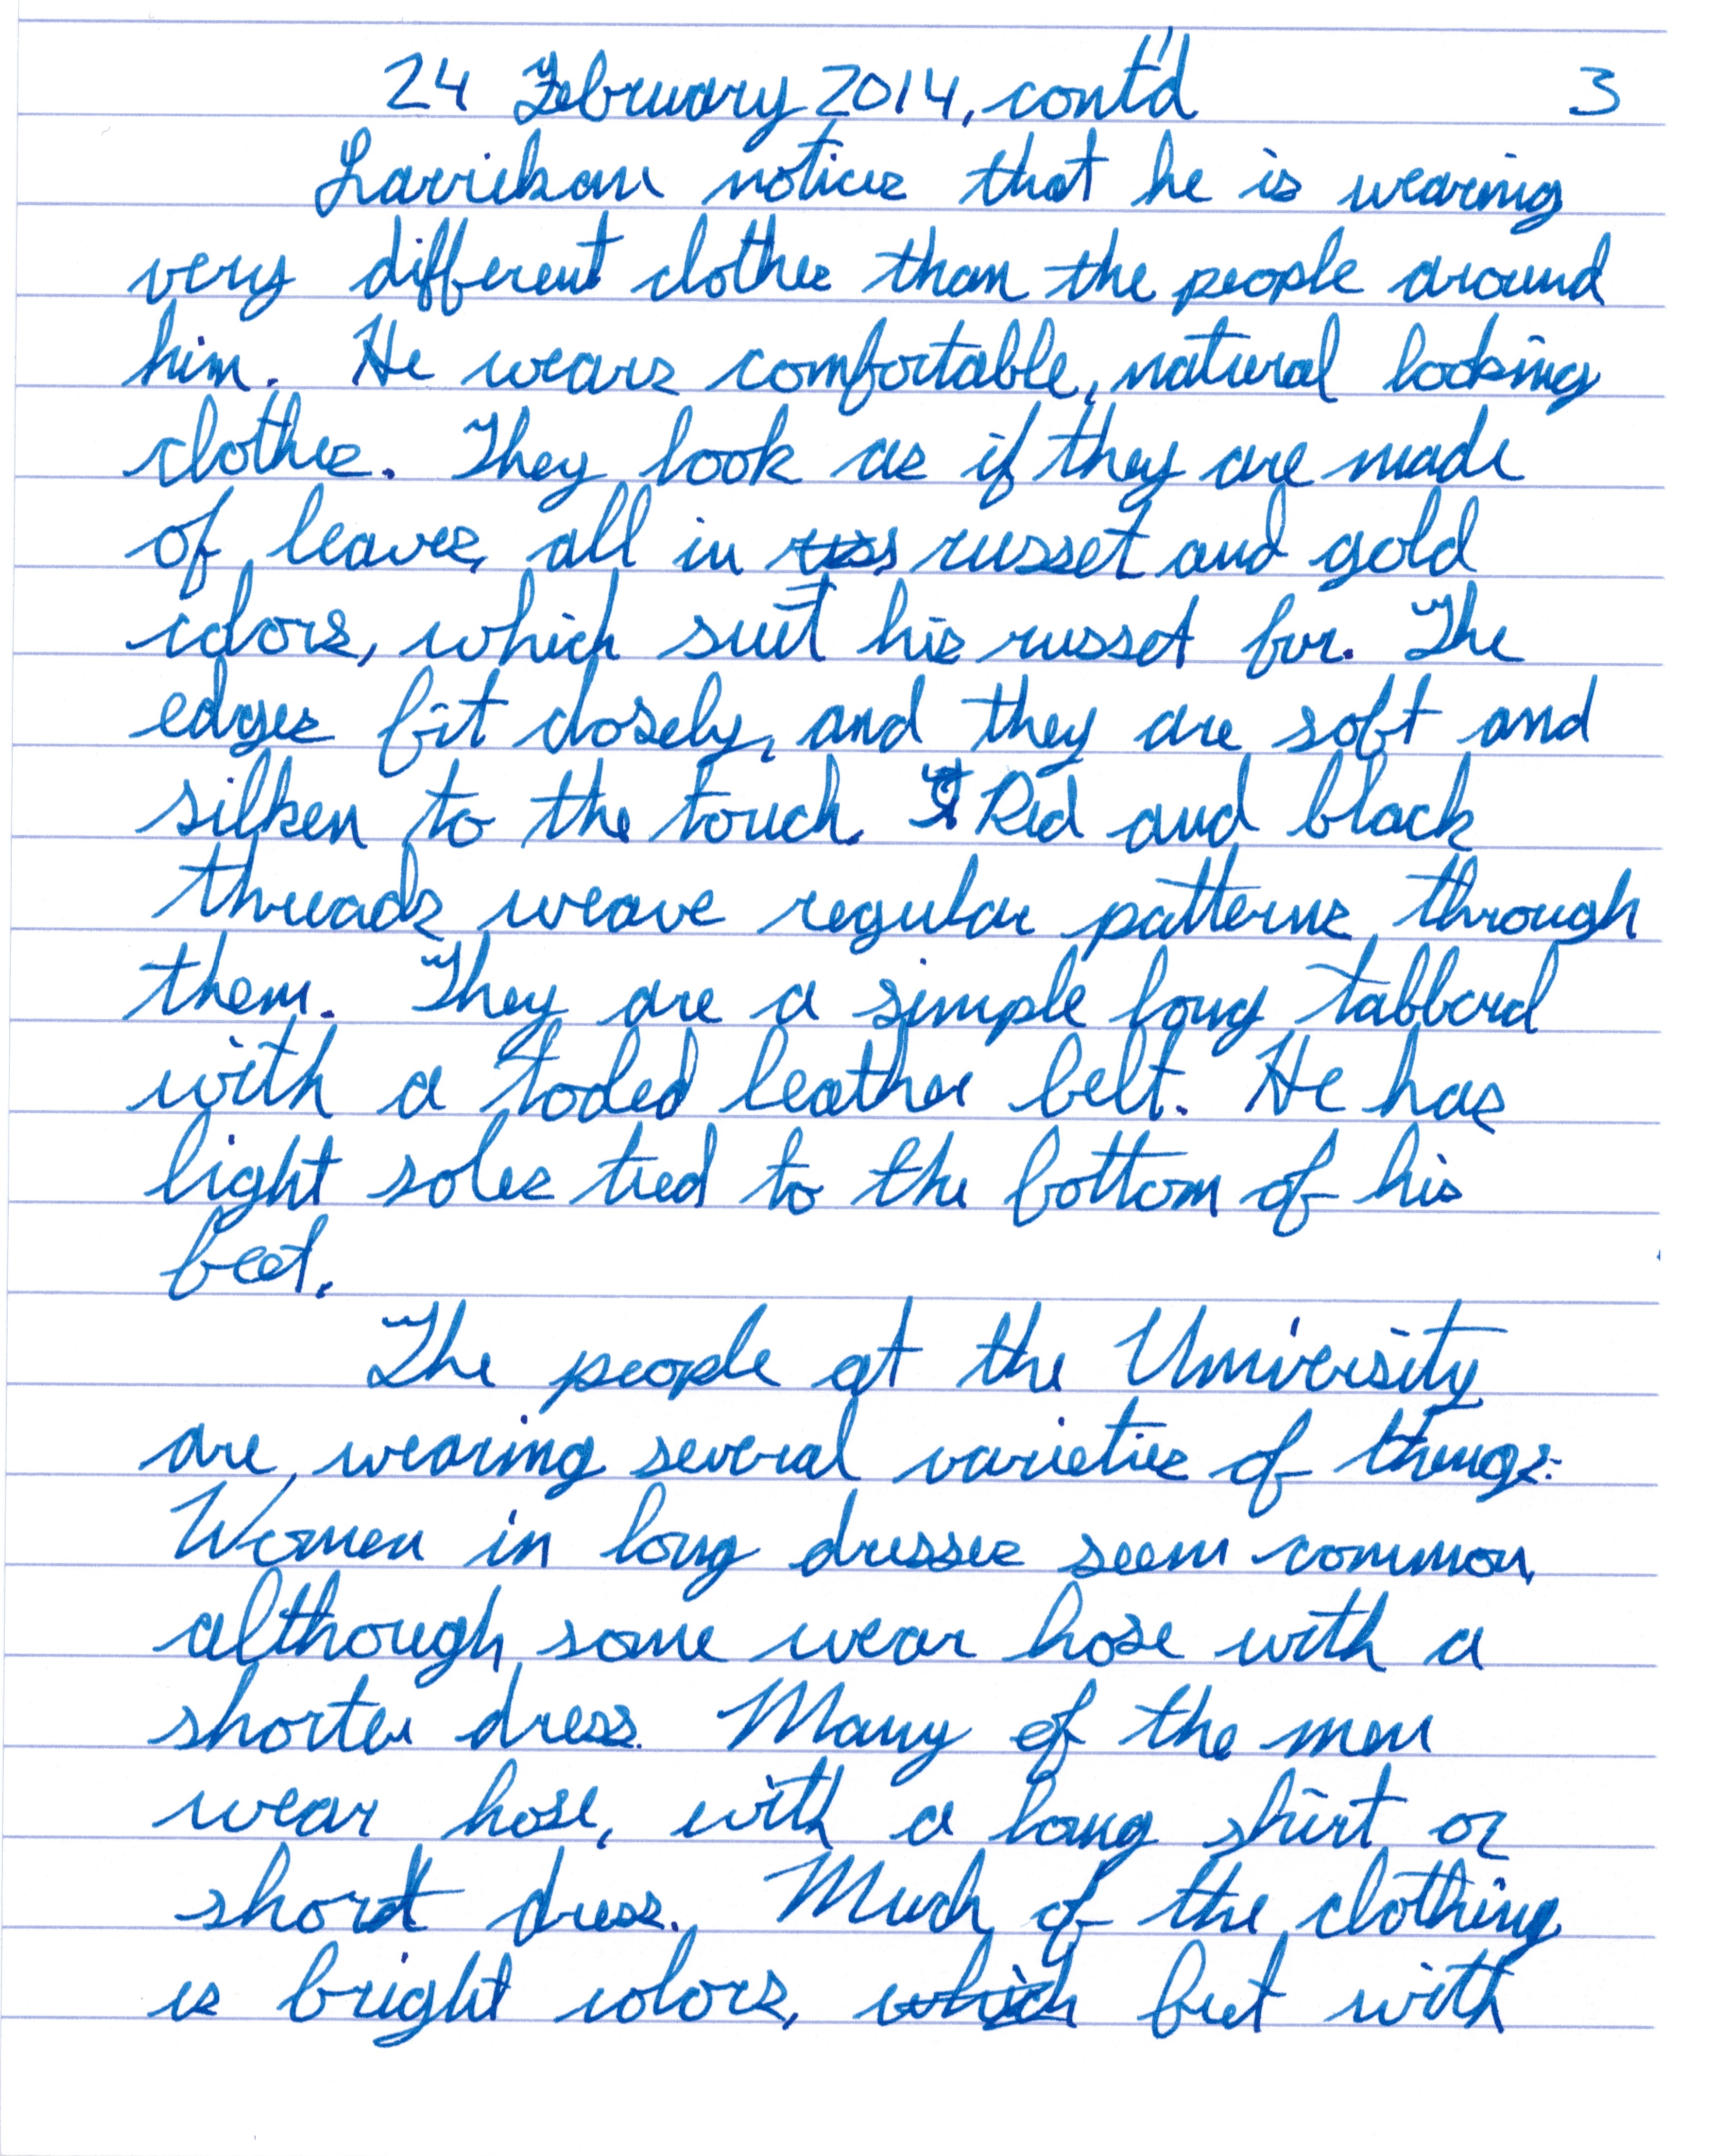 24 February 2014, cont'd 3
Larrekan notices that he is wearing
very different clothes than the people around
him. He wears comfortable, natural looking
clothes. They look as if they are made
of leaves, all in russ russet and gold
colors, which suit his russet fur. The
edges fit closely, and they are soft and
silken to the touch. Red and black
threads weave regular patterns through
them. They are a simple long tabbard
with a tooled leather belt. He has
light soles tied to the bottom of his
feet.
The people at the University
are wearing several varieties of things.
Women in long dresses seem common,
although some wear hose with a
shorter dress. Many of the men
wear hose, with a long shirt or
short dress. Much of the clothing
is bright colors, which but with